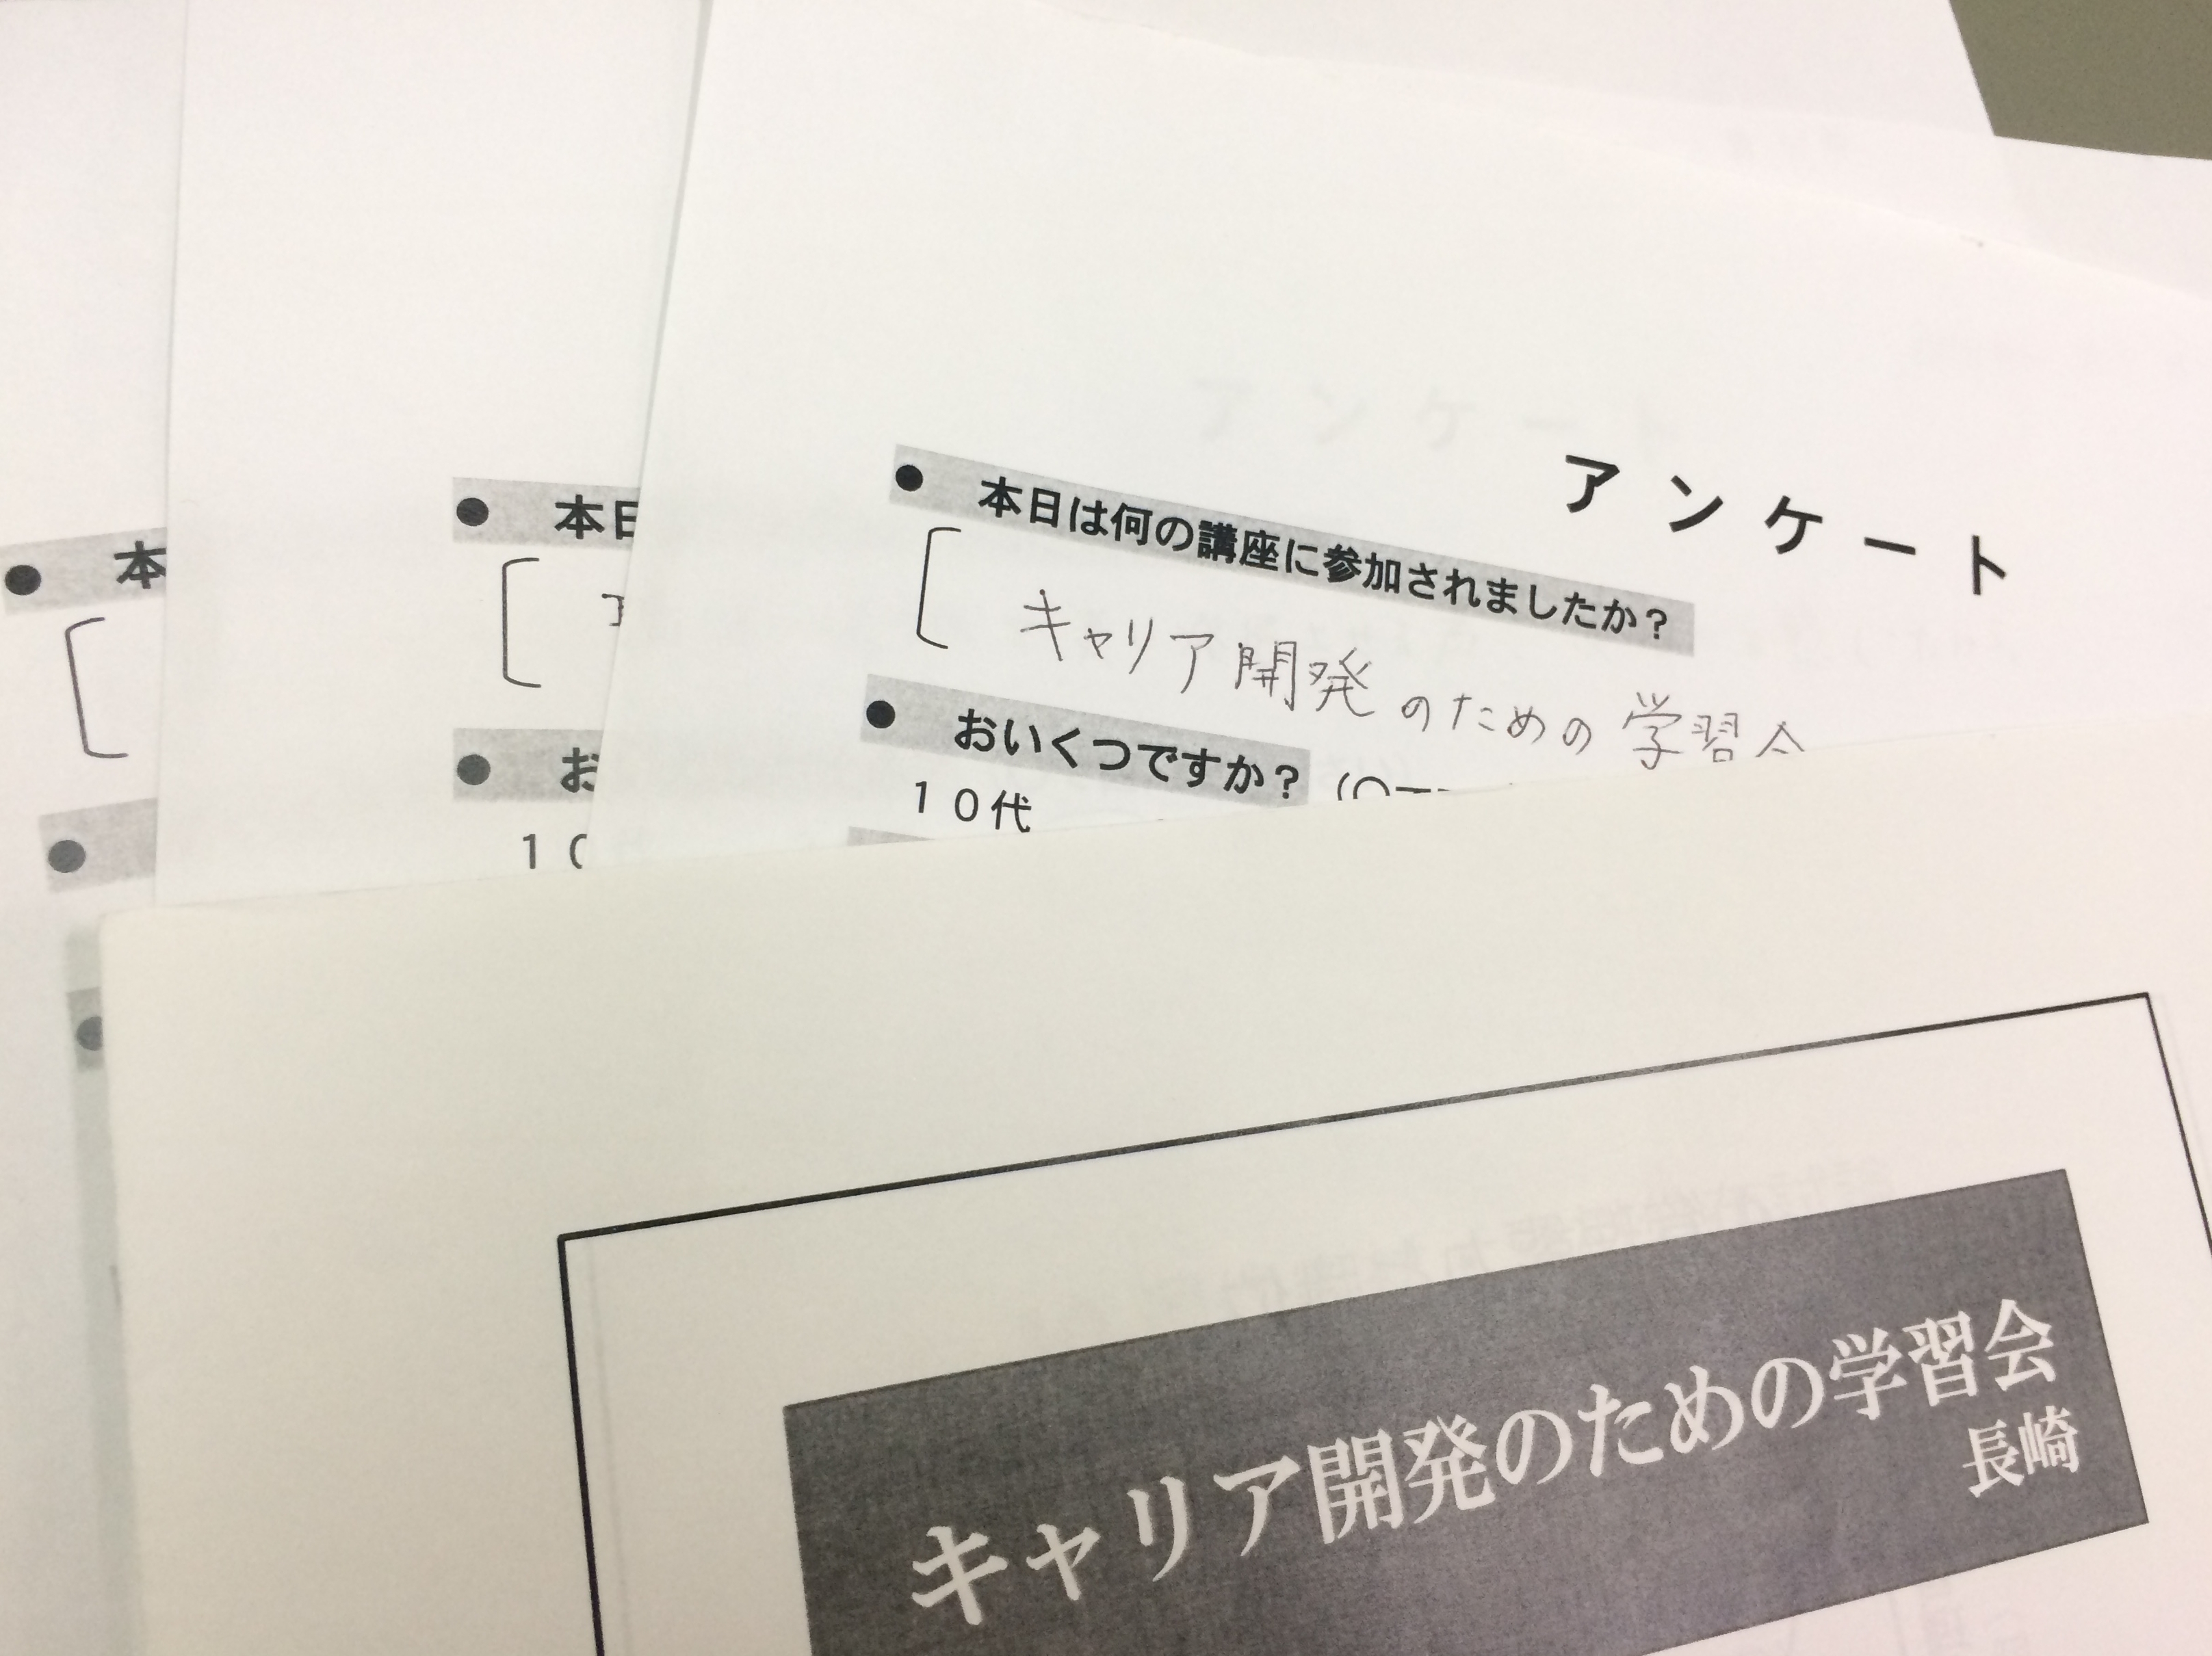 アンケート
● 本日は何の講座に参加されましたか？
キャリア開発のための学習会
● おいくつですか？
１０代
● 本日
● お
１０
● 本
キャリア開発のための学習会
長崎